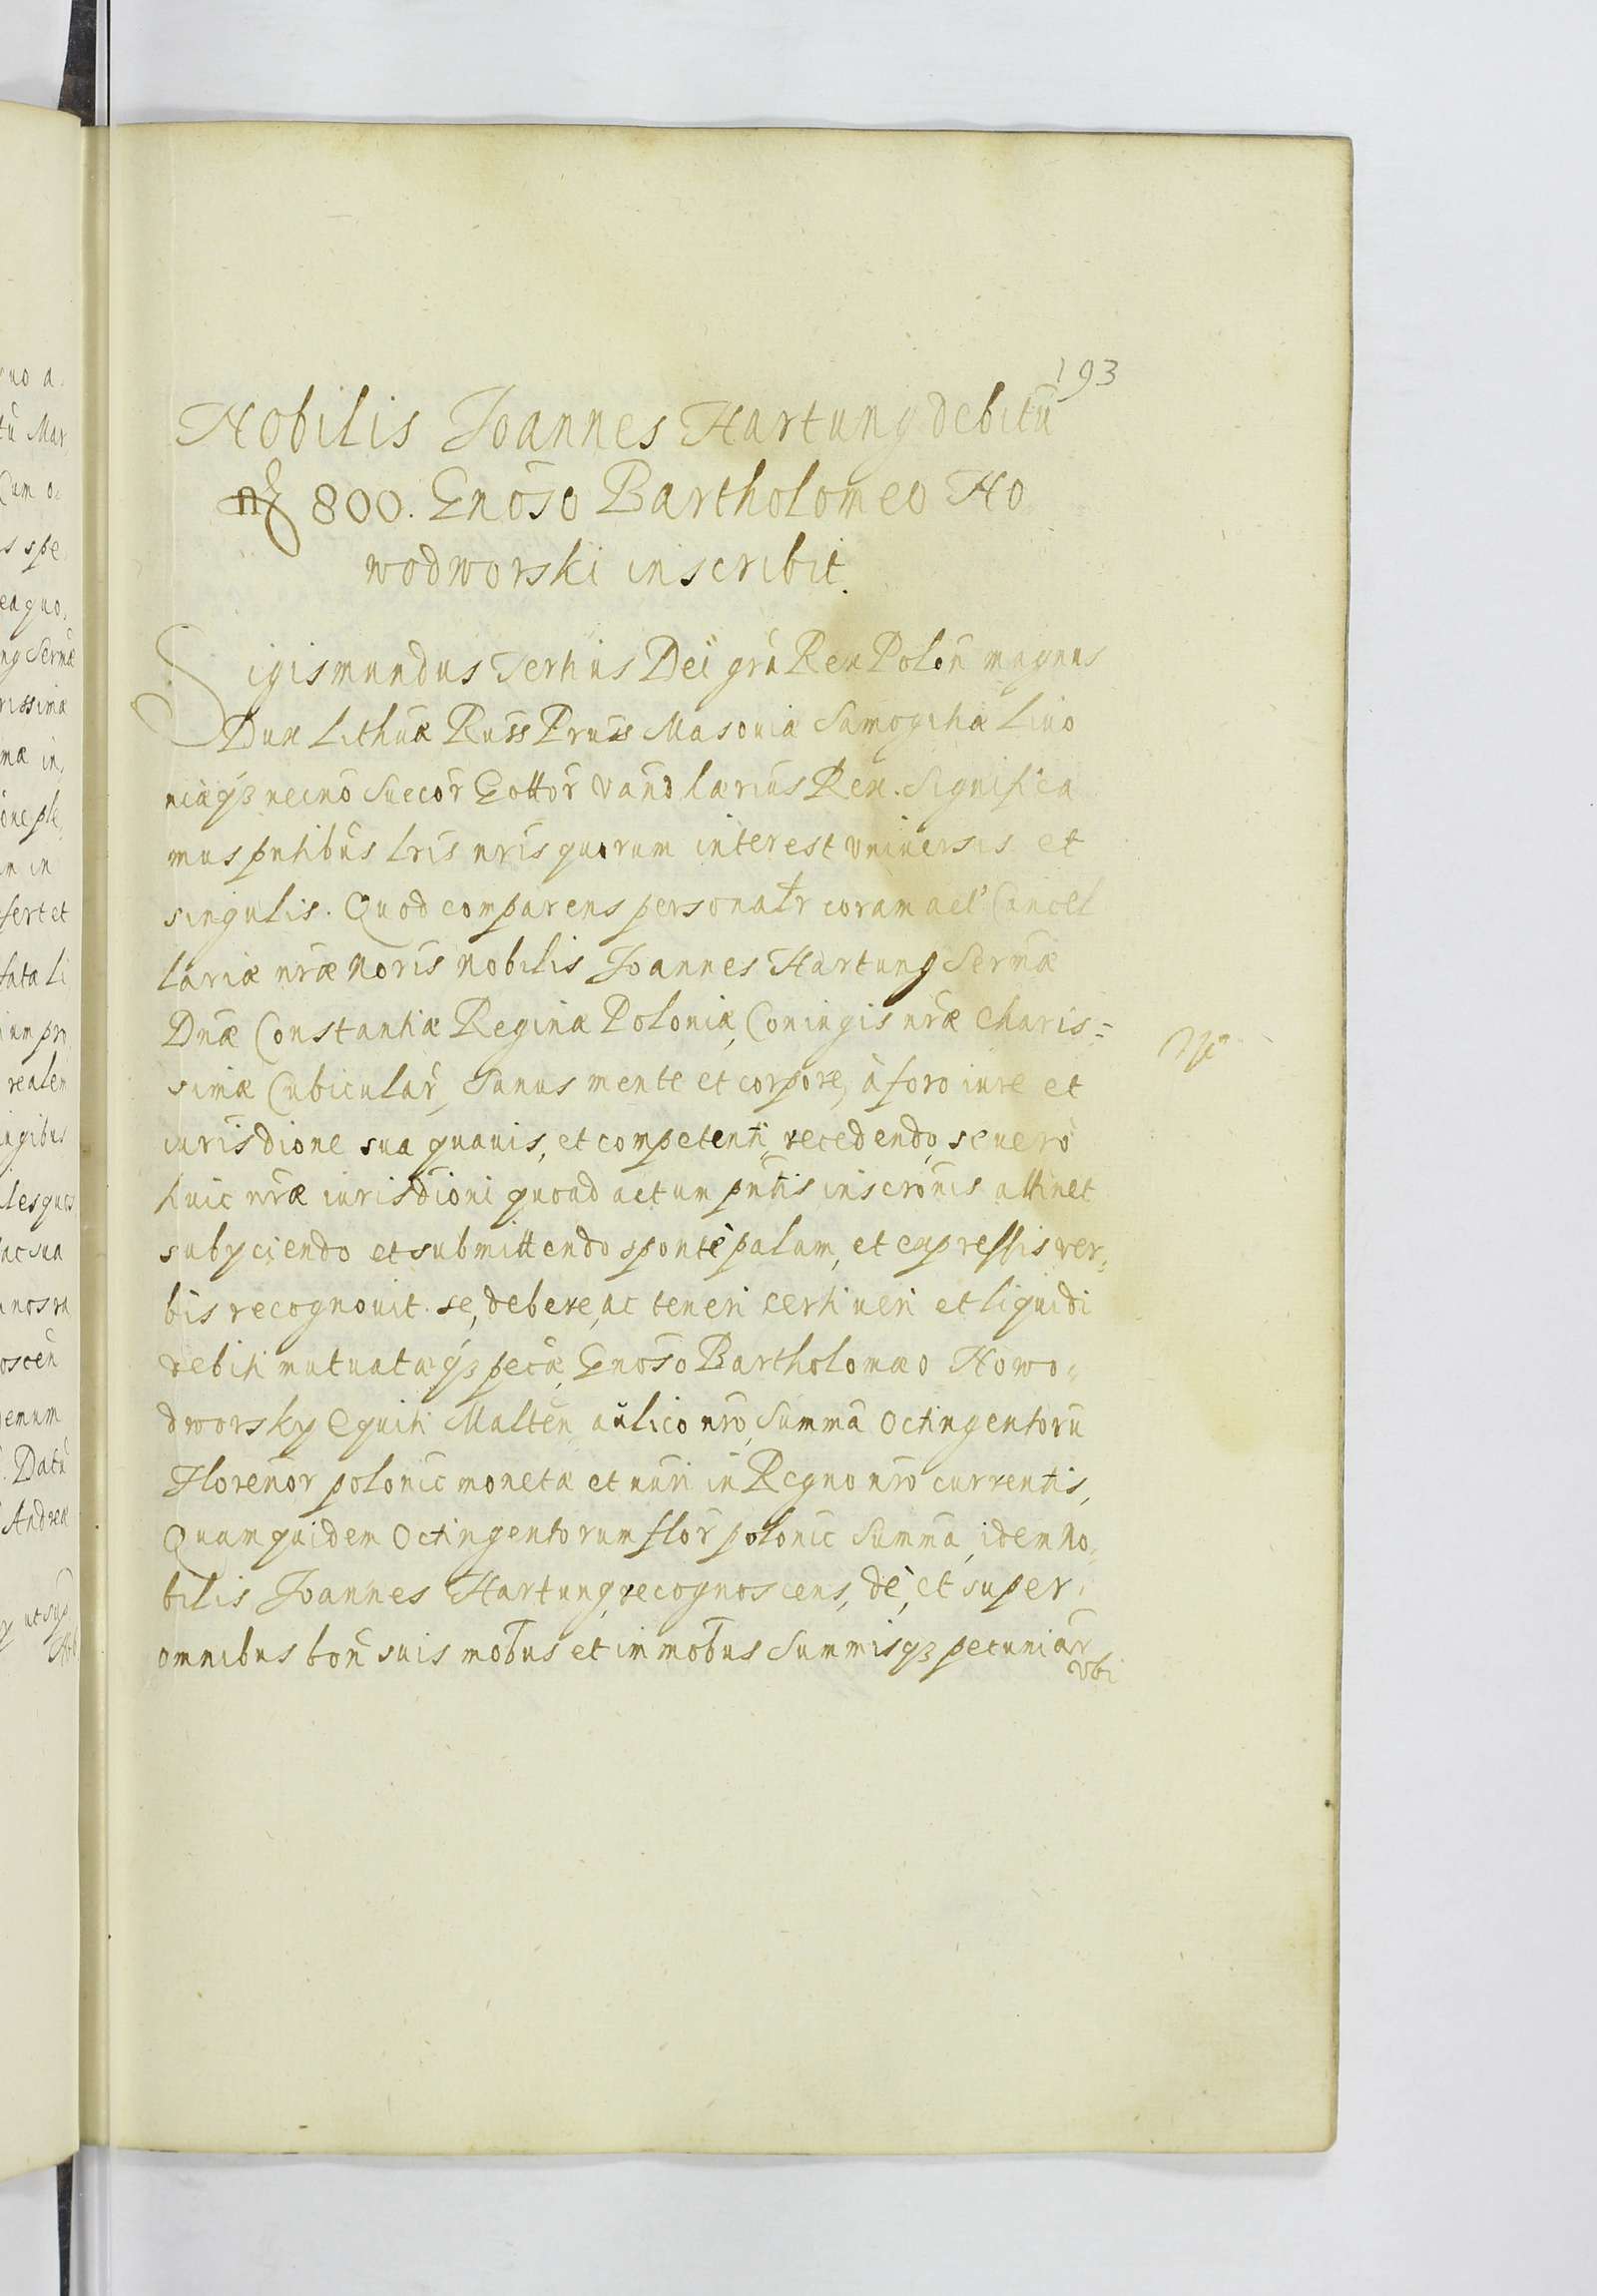 193
Nobilis Joannes Hartung debitū
800. Gnoso Bartholomeo No
wodworski inscribit.
Sigismundus Tertius Dei gra Rex Polon magnus
Dux Lithuæ Russ Pruss Masouiæ Samogitiæ Liuo
niæqȝ necno Suecor Gottor Vandlarius Rex. Significa
mus pntibus lris nris quorum interest vniuersis et
singulis. Quod comparens personalr coram act Cancel
lariæ nræ noris nobilis Joannes Hartung Sermæ
Dnæ Constantiæ Reginæ Poloniæ, Coniugis nræ charis=
simæ Cubicular, Sanus mente et corpore, à foro iure et
iurisdione sua quauis, et competenti, recedendo, se uero
huic nræ iurisdioni quoad actum pntis inscronis attinet
subyciendo et submittendo sponte palam, et expressis ver,
bis recognouit. se, debere, ac teneri certi ueri et liquidi
debiti mutuatæqȝ pecæ, Gnoso Bartholomæo Nowo,
dworsky Equiti Malten aulico nro, Summā Octingentorū
Florenor polonic monetæ et nuri in Regno nro currentis,
Quam quidem Octingentorum flor polonic Summā, idem No,
bilis Joannes Hartung, recognoscens, dè, et super,
omnibus bon suis mobus et immobus Summisqȝ pecuniar
vbi
uo a
tū Mar
Cum o
s spe
ea quo,
ng Sermæ
rissimæ
mæ in,
one ple,
m in
fert et
fata li
um pro
realem
ngibus
les ques
ac sua
nos ra
oscen
emum
. Datū
Andreæ
ut sup